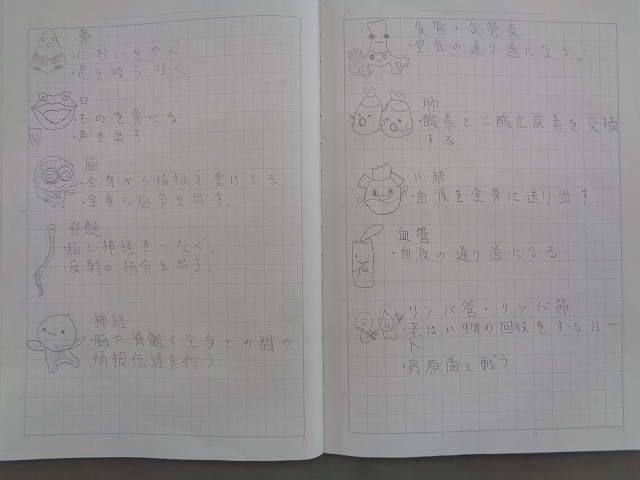 鼻
・においをかぐ
・息を吸う、吐く
口
・ものを食べる
・声を出す
脳
・全身から情報を受けとる
・全身に指令を出す。
脊髄
・脳と神経をつなぐ。
・反射の指令を出す。
神経
・脳や脊髄と全身との間の
情報伝達を行う。
気管・気管支
・空気の通り道になる。
肺
・酸素と二酸化炭素を交換
する
心臓
・血液を全身に送り出す。
血管
・血液の通り道になる
リンパ管・リンパ節
・老はい物の回収をするルー
ト
・病原菌と戦う